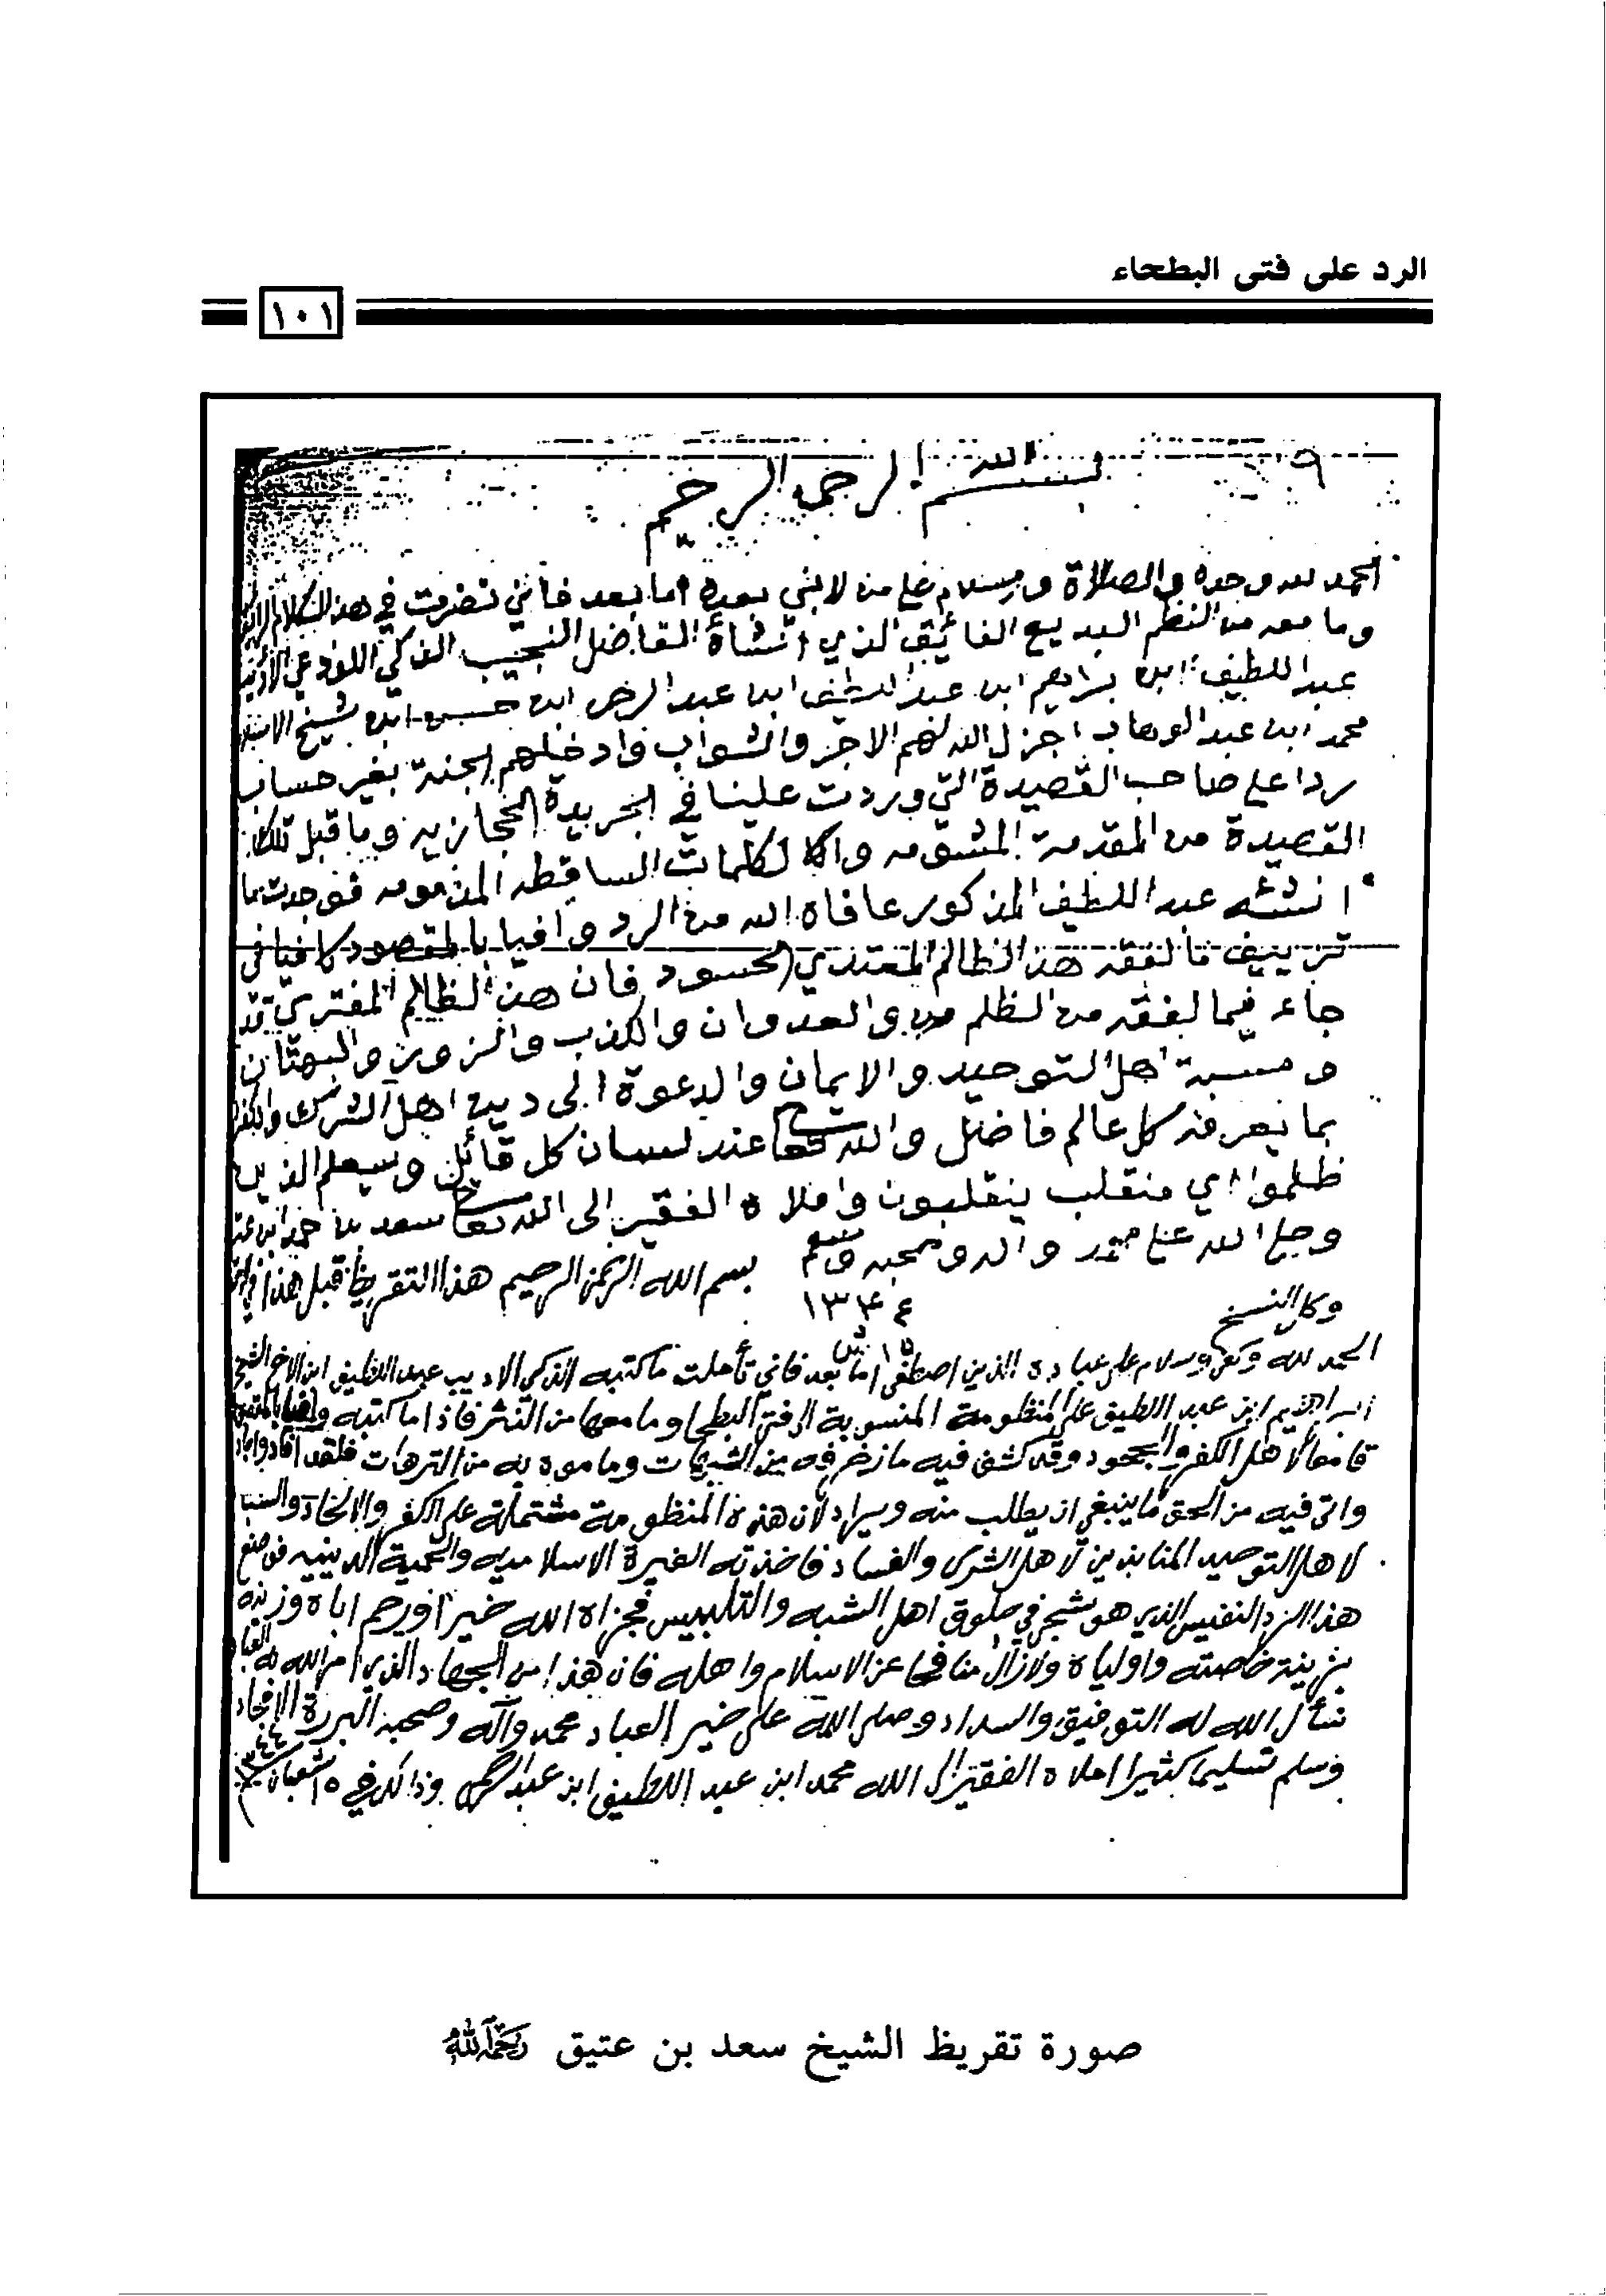 الرد على فتى البطحاء
١٠١
بسم الله الرحمن الرحيم
الحمد لله وحده والصلاة والسلام على من لا نبي بعده اما بعد فاني نضرت في هذا الكلام
وما معه من النظم البديع الفائق الذي انشأة الفاضل النجيب الذكي اللوذعي
عبد اللطيف ابن براهيم ابن عبد اللطيف ابن عبد الرحمن ابن حسن ابن شيخ الاسلام
محمد ابن عبد الوهاب اجزل الله لهم الاجر والثواب وادخلهم الجنة بغير حساب
ردا على صاحب القصيدة التي وردت علينا في الجريدة الحجازيه وما قبل تلك
القصيدة من المقدمة المشومه والكلمات الساقطه المذمومه فوجدت ما
انشئه عبد اللطيف المذكور عافاه الله من الرد وافيا بالمقصود كافيا في
تزييف ما لفقه هذا الظالم المعتدي الحسود فان هذا الظالم المفتري قد
جاء فيما لفقه من الظلم والعدوان والكذب والزور والبهتان
ومسبة اهل التوحيد والايمان والدعوة الى دين اهل الشرك والكفر
بما يعرفه كل عالم فاضل والله تعالى عند لسان كل قائل وسيعلم الذين
ظلموا اي منقلب ينقلبون واملاه الفقير الى الله تعالى سعد بن حمد ابن
وصلى الله على محمد واله وصحبه وسلم
١٣٤٤
بسم الله الرحمن الرحيم هذا التقريظ قبل هذا
وكل النسخ
١٥ ش
الحمد لله وكفى وسلام على عباده الذين اصطفى اما بعد فاني تأملت ما كتبه الذكي الاديب عبد اللطيف ابن الاخ الشيخ
ابراهيم ابن عبد اللطيف على المنظومة المنسوبة الى فتى البطحا وما معها من النثر فاذا ما كتبه وافيا بالمقصود
قامعا لاهل الكفر والجحود وقد كشف فيه ما زخرفه من الشبهات وما موه به من الترهات فلقد افاد واجاد
واتى فيه من الحق ما ينبغي ان يطلب منه ويراد لان هذه المنظومة مشتملة على الكفر والالحاد والسب
لاهل التوحيد المنابذين لاهل الشرك والفساد فاخذته الغيرة الاسلاميه والحمية الدينيه فوضع
هذا الرد النفيس الذي هو شجى في حلوق اهل الشبه والتلبيس فجزاه الله خيرا ورحم اباه وزينه
بزينة خاصته واولياه ولازال منافحا عن الاسلام واهله فان هذا من الجهاد الذي امر الله به العباد
نسأل الله له التوفيق والسداد وصلى الله على خير العباد محمد وآله وصحبه البررة الامجاد
وسلم تسليما كثيرا املاه الفقير الى الله محمد ابن عبد اللطيف ابن عبد الرحمن وذالك في ١٥ شعبان
صورة تقريظ الشيخ سعد بن عتيق رحمه الله